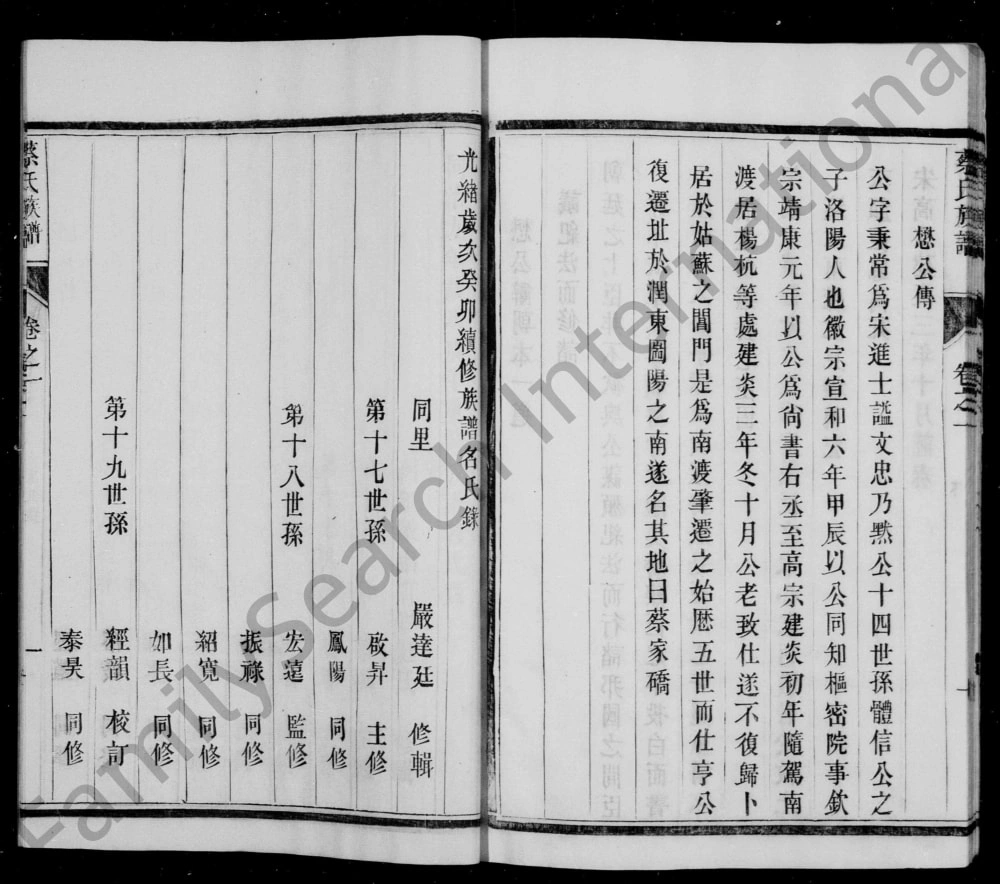 蔡氏族譜 卷之一
懋公傳
公字秉常爲宋進士諡文忠乃黙公十四世孫體信公之
子洛陽人也徽宗宣和六年甲辰以公同知樞密院事欽
宗靖康元年以公爲尙書右丞至高宗建炎初年隨駕南
渡居楊杭等處建炎三年冬十月公老致仕遂不復歸卜
居於姑蘇之閶門是爲南渡肇遷之始歷五世而仕亨公
復遷址於潤東圌陽之南遂名其地曰蔡家礄
光緒歲次癸卯續修族譜名氏錄
同里 嚴達廷 修輯
第十七世孫 啟昇 主修
鳳陽 同修
第十八世孫 宏蓫 監修
振祿 同修
紹寬 同修
如長 同修
第十九世孫 經韻 校訂
泰昊 同修
蔡氏族譜 卷之一 一
FamilySearch International